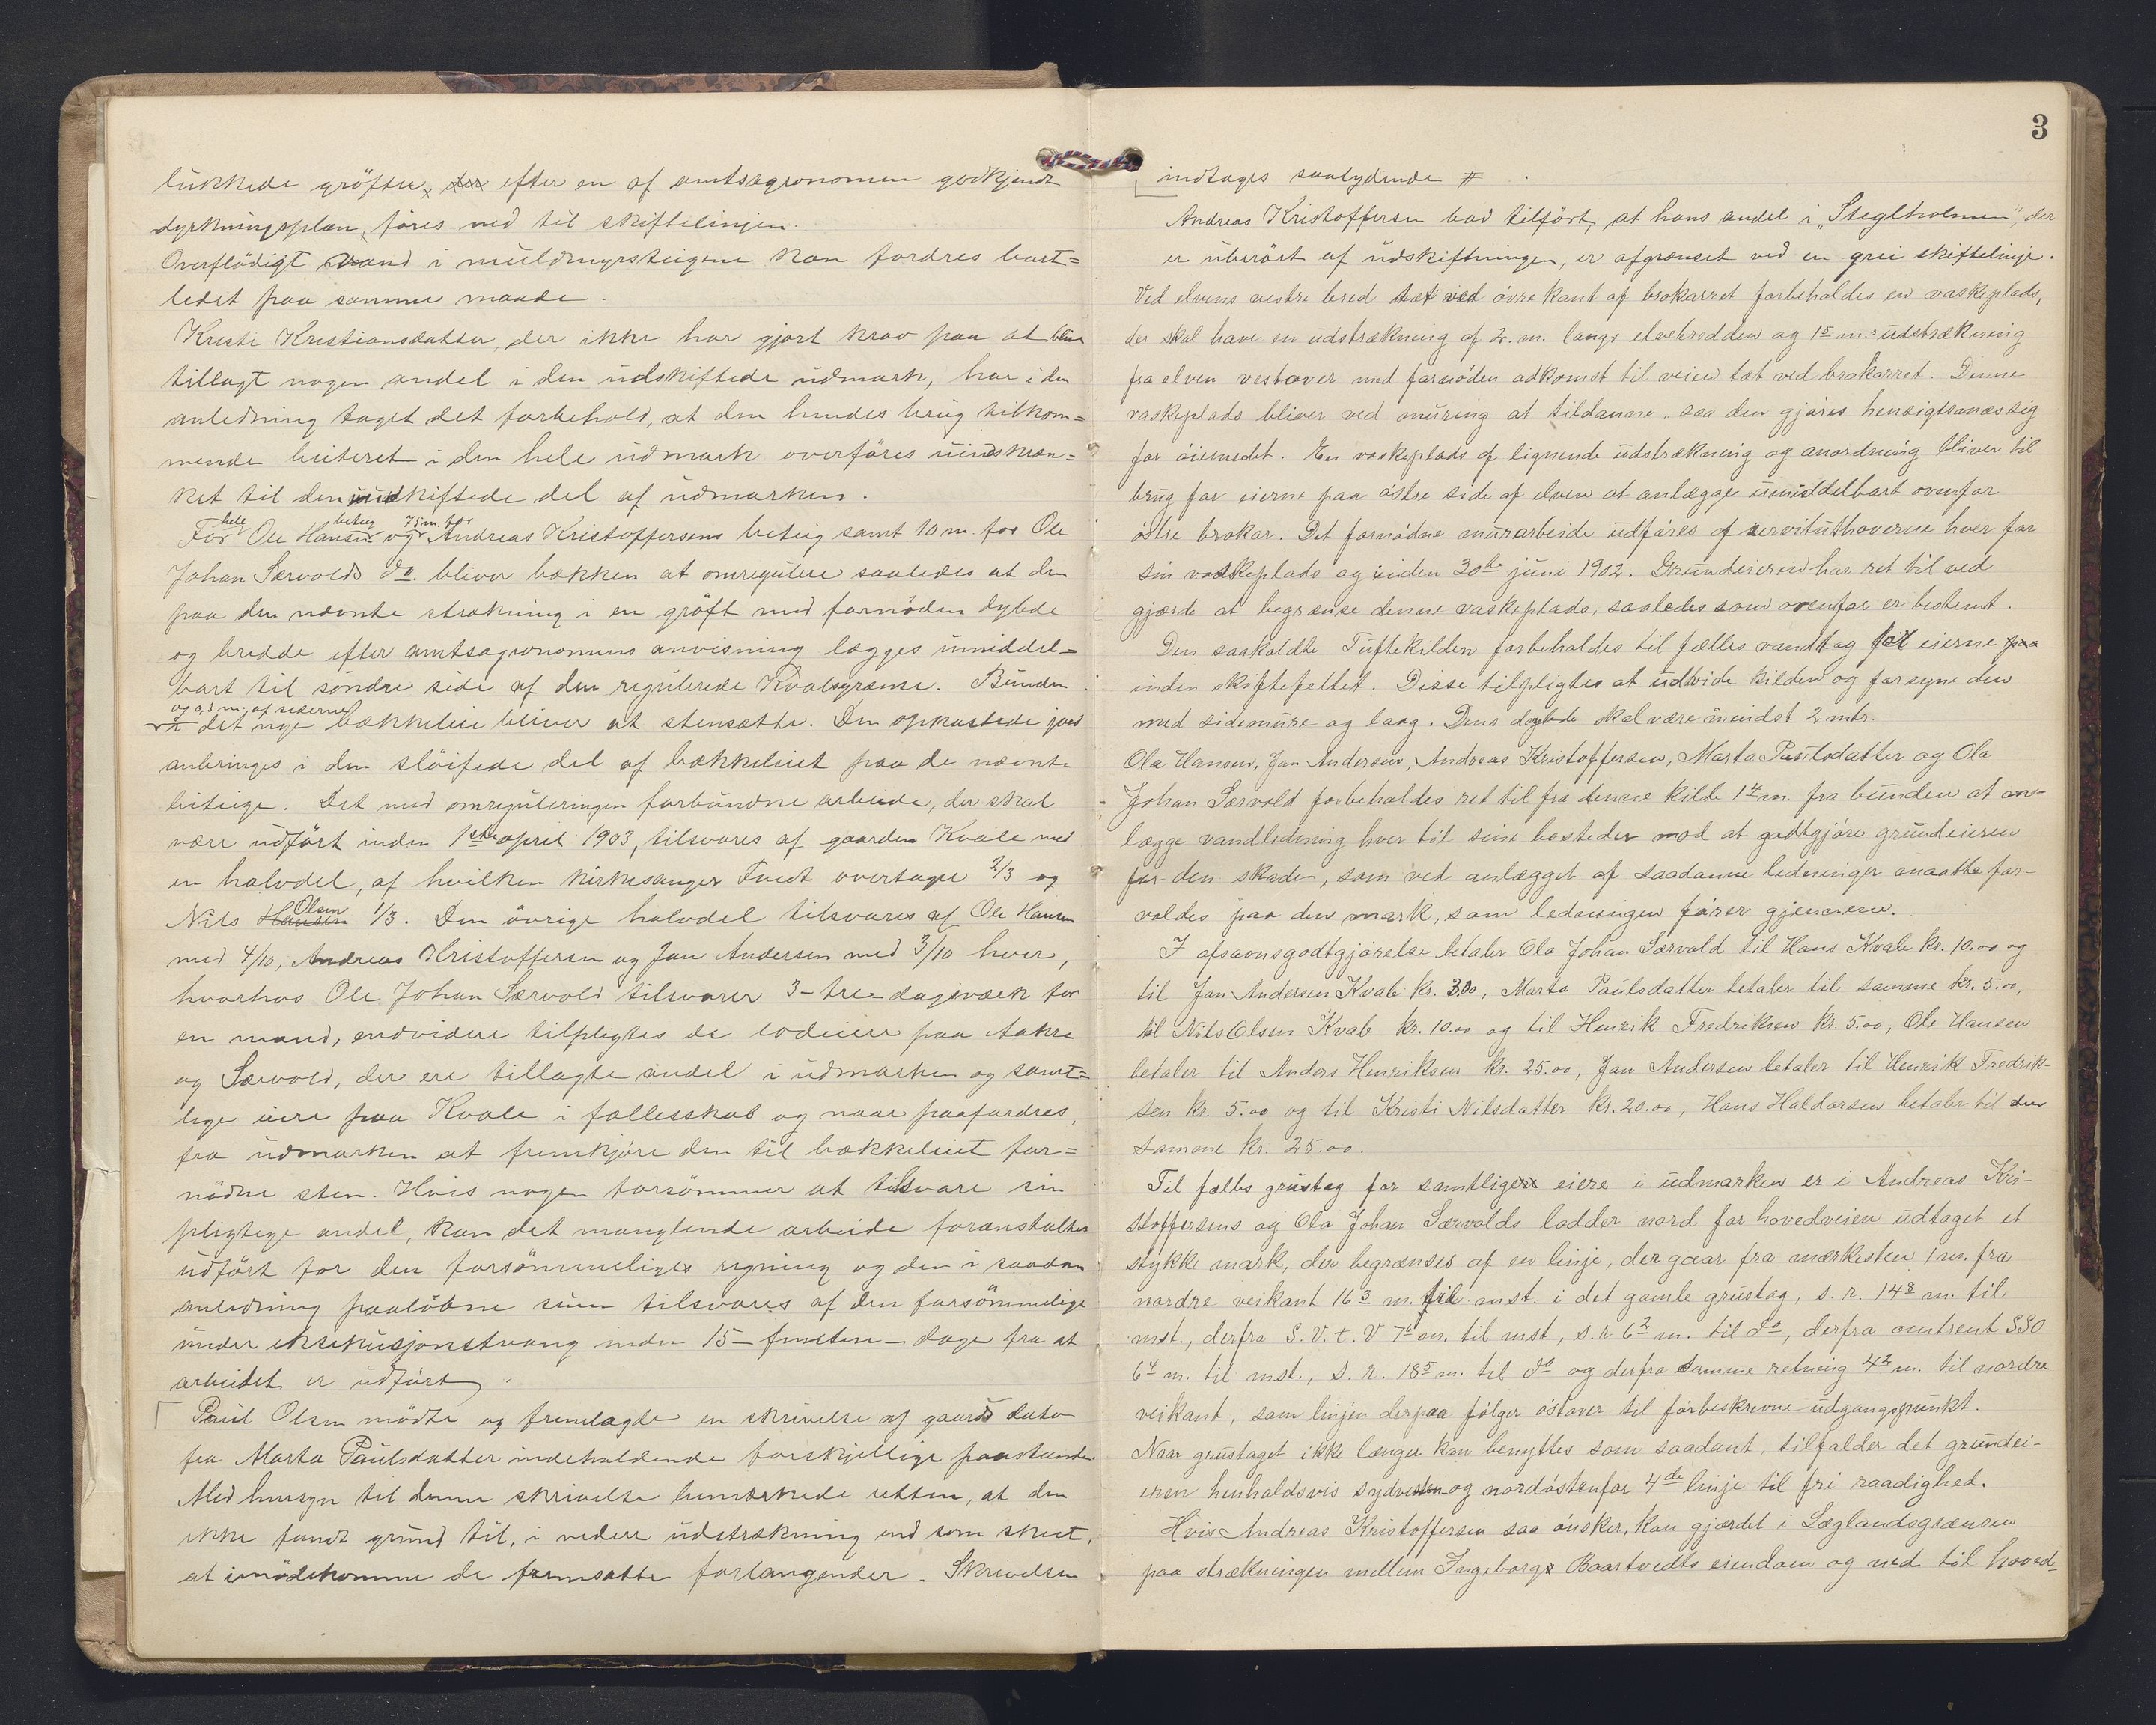 lukkede gröfter, efter en af amtsagronomen godkjendt
dyrkningsplan, föres ned til skiftelinjen.
Overflödigt vand i muldmyrsteigene kan fordres bort=
ledet paa samme maade.
Kristi Kristiansdatter, der ikke har gjort krav paa at blive
tillagt nogen andel i den udskiftede udmark, har i den
anledning taget det forbehold, at den hendes brug tilkom=
mende beiteret i den hele udmark overföres uindskræn=
ket til den uudskiftede del af udmarken.
For hele Ole Hansens beteig og 75 m. for Andreas Kristoffersens beteig samt 10 m. for Ole
Johan Særvolds do. bliver bækken at omregulere saaledes at den
paa den nævnte strækning i en gröft med fornöden dybde
og bredde efter amtsagronomens anvisning lægges umiddel=
bart til söndre side af den regulerede Kvalsgrænse. Bunden
og 0,3 m. af siderne
i det nye bækkeleie bliver at stensætte. Den opkastede jord
anbringes i den slöifede del af bækkeleiet paa de nævnte
beteige. Det med omreguleringen forbundne arbeide, der skal
være udfört inden 1ste april 1903, tilsvares af gaarden Kvale med
en halvdel, af hvilken kirkesanger Tvedt overtager 2/3 og
Nils Olsen 1/3. Den övrige halvdel tilsvares af Ole Hansen
med 4/10, Andreas Kristoffersen og Jan Andersen med 3/10 hver,
hvorhos Ole Johan Særvold tilsvarer 3 - tre - dagsværk for
en mand, endvidere tilpligtes de lodeiere paa Aakre
og Særvold, der ere tillagte andel i udmarken og samt=
lige eiere paa Kvale i fællesskab og naar paafordres,
fra udmarken at fremkjöre den til bækkeleiet for=
nödne sten. Hvis nogen forsömmer at tilsvare sin
pligtige andel, kan det manglende arbeide foranstaltes
udfört for den forsömmeliges regning og den i saadan
anledning paalöbne sum tilsvares af den forsömmelige
under eksekusjonstvang inden 15 - femten - dage fra at
arbeidet er udfört.
Paul Olsen mödte og fremlagde en skrivelse af gaards dato
fra Marta Paulsdatter indeholdende forskjellige paastande.
Med hensyn til denne skrivelse bemærkede retten, at den
ikke fandt grund til, i videre udstrækning end som skeet,
at imödekomme de fremsatte forlangender. Skrivelsen
3
indtages saalydende #
Andreas Kristoffersen bad tilfört, at hans andel i „Steglholmen”, der
er uberört af udskiftningen, er afgrænset ved en grei skiftelinje.
Ved elvens vestre bred tæt ved övre kant af brokarret forbeholdes en vaskeplads,
der skal have en udstrækning af 2. m. langs elvebredden og 15 m. udstrækning
fra elven vestover med fornöden adkomst til veien tæt ved brokarret. Denne
vaskeplads bliver ved muring at tildanne, saa den gjöres hensigtsmæssig
for öiemedet. En vaskeplads af lignende udstrækning og anordning bliver til
brug for eierne paa östre side af elven at anlægge umiddelbart ovenfor
östre brokar. Det fornödne murarbeide udföres af servituthaverne hver for
sin vaskeplads og inden 30te juni 1902. Grundeieren har ret til ved
gjærde at begrænse denne vaskeplads, saaledes som ovenfor er bestemt.
Den saakaldte Tuftekilden forbeholdes til fælles vandtag for eierne
inden skiftefeltet. Disse tilpligtes at udvide kilden og forsyne den
med sidemure og laag. Dens dybde skal være mindst 2 mtr.
Ola Hansen, Jan Andersen, Andreas Kristoffersen, Marta Paulsdatter og Ola
Johan Særvold forbeholdes ret til fra denne kilde 14 m. fra bunden at an-
lægge vandledning hver til sine bosteder mod at godtgjöre grundeieren
for den skade, som ved anlægget af saadanne ledninger maatte for-
voldes paa den mark, som ledningen förer gjennem.
I afsavnsgodtgjörelse betaler Ola Johan Særvold til Hans Kvale kr. 10.00 og
til Jan Andersen Kvale kr. 3.00, Marta Paulsdatter betaler til samme kr. 5.00,
til Nils Olsen Kvale kr. 10.00 og til Henrik Fredriksen kr. 5.00, Ole Hansen
betaler til Anders Henriksen kr. 25.00, Jan Andersen betaler til Henrik Fredrik-
sen kr. 5.00 og til Kristi Nilsdatter kr. 20.00, Hans Haldorsen betaler til den
samme kr. 25.00.
Til fælles grustag for samtlige eiere i udmarken er i Andreas Kri-
stoffersens og Ola Johan Særvolds lodder nord for hovedveien udtaget et
stykke mark, der begrænses af en linje, der gaar fra mærkesten 1 m. fra
nordre veikant 163 m. til mst. i det gamle grustag, s. r. 148 m. til
mst., derfra S. V. t. V 76 m. til mst, s. r 62 m. til do, derfra omtrent SSO
64 m. til mst., s. r. 185 m. til do og derfra samme retning 42 m. til nordre
veikant, som linjen derpaa fölger östover til förbeskrevne udgangspunkt.
Naar grustaget ikke længer kan benyttes som saadant, tilfalder det grundei-
eren henholdsvis sydvesten og nordöstenfor 4de linje til fri raadighed.
Hvis Andreas Kristoffersen saa önsker, kan gjærdet i Læglandsgrænsen
paa strækningen mellem Ingeborgs Baartvedts eiendom og ned til hoved-